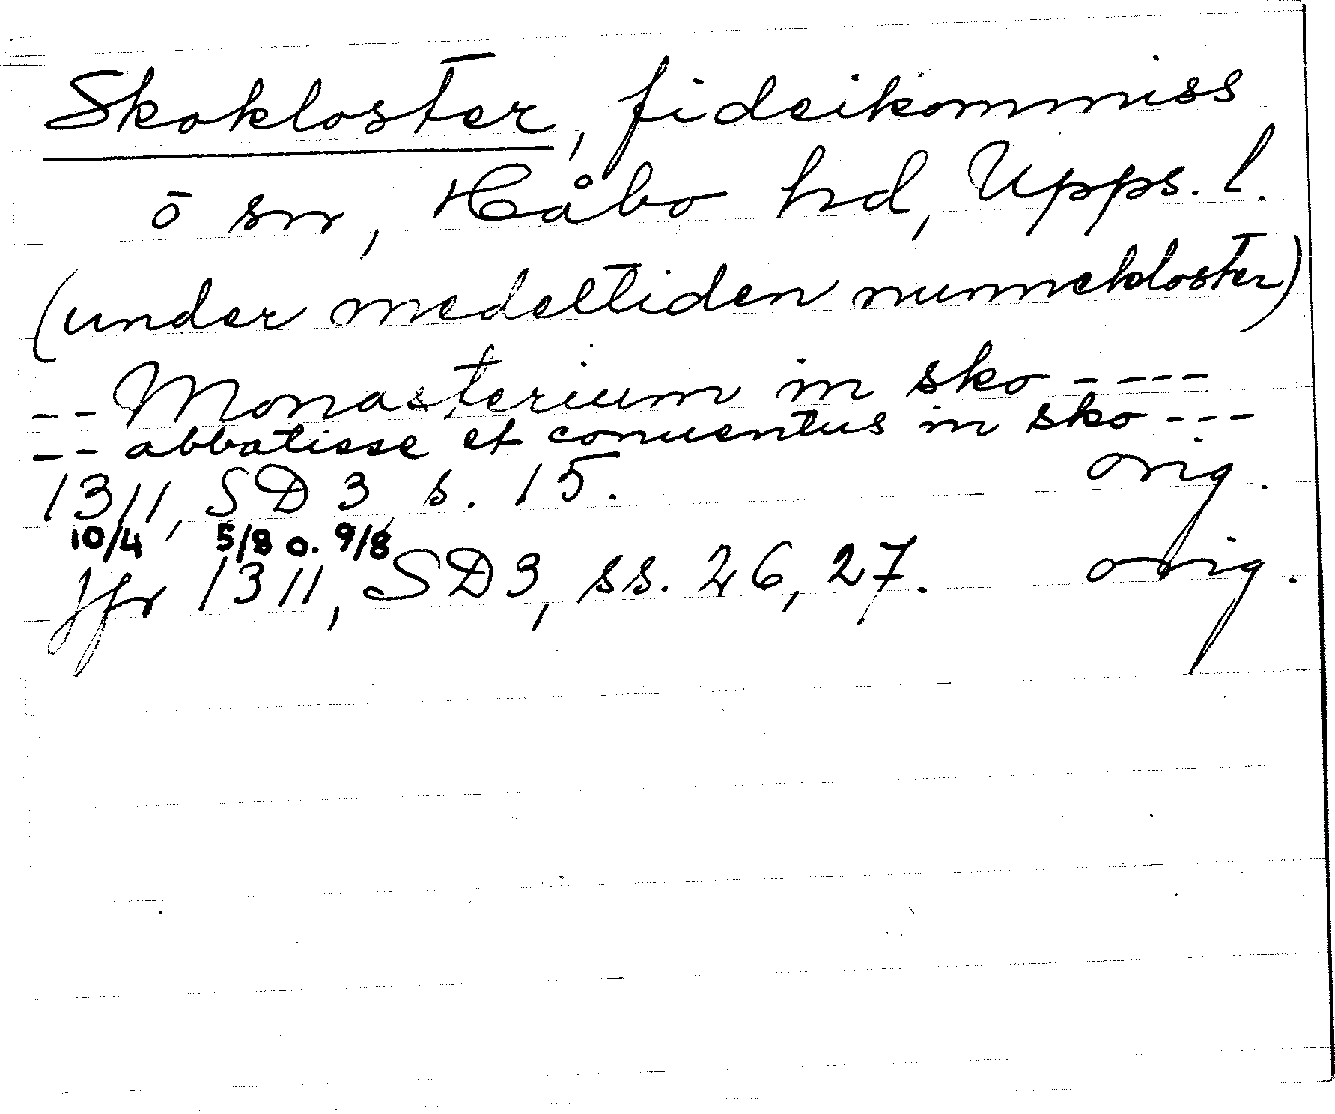 Skokloster, fideikommiss
ō sn, Håbo hd, Upps. l.
(under medeltiden nunnekloster)
-- Monasterium in sko ----
-- abbatisse et conuentus in sko ---
1311, SD 3 s. 15. orig.
10/4 5/8 o. 9/8
Jfr 1311, SD3, ss. 26, 27. orig.